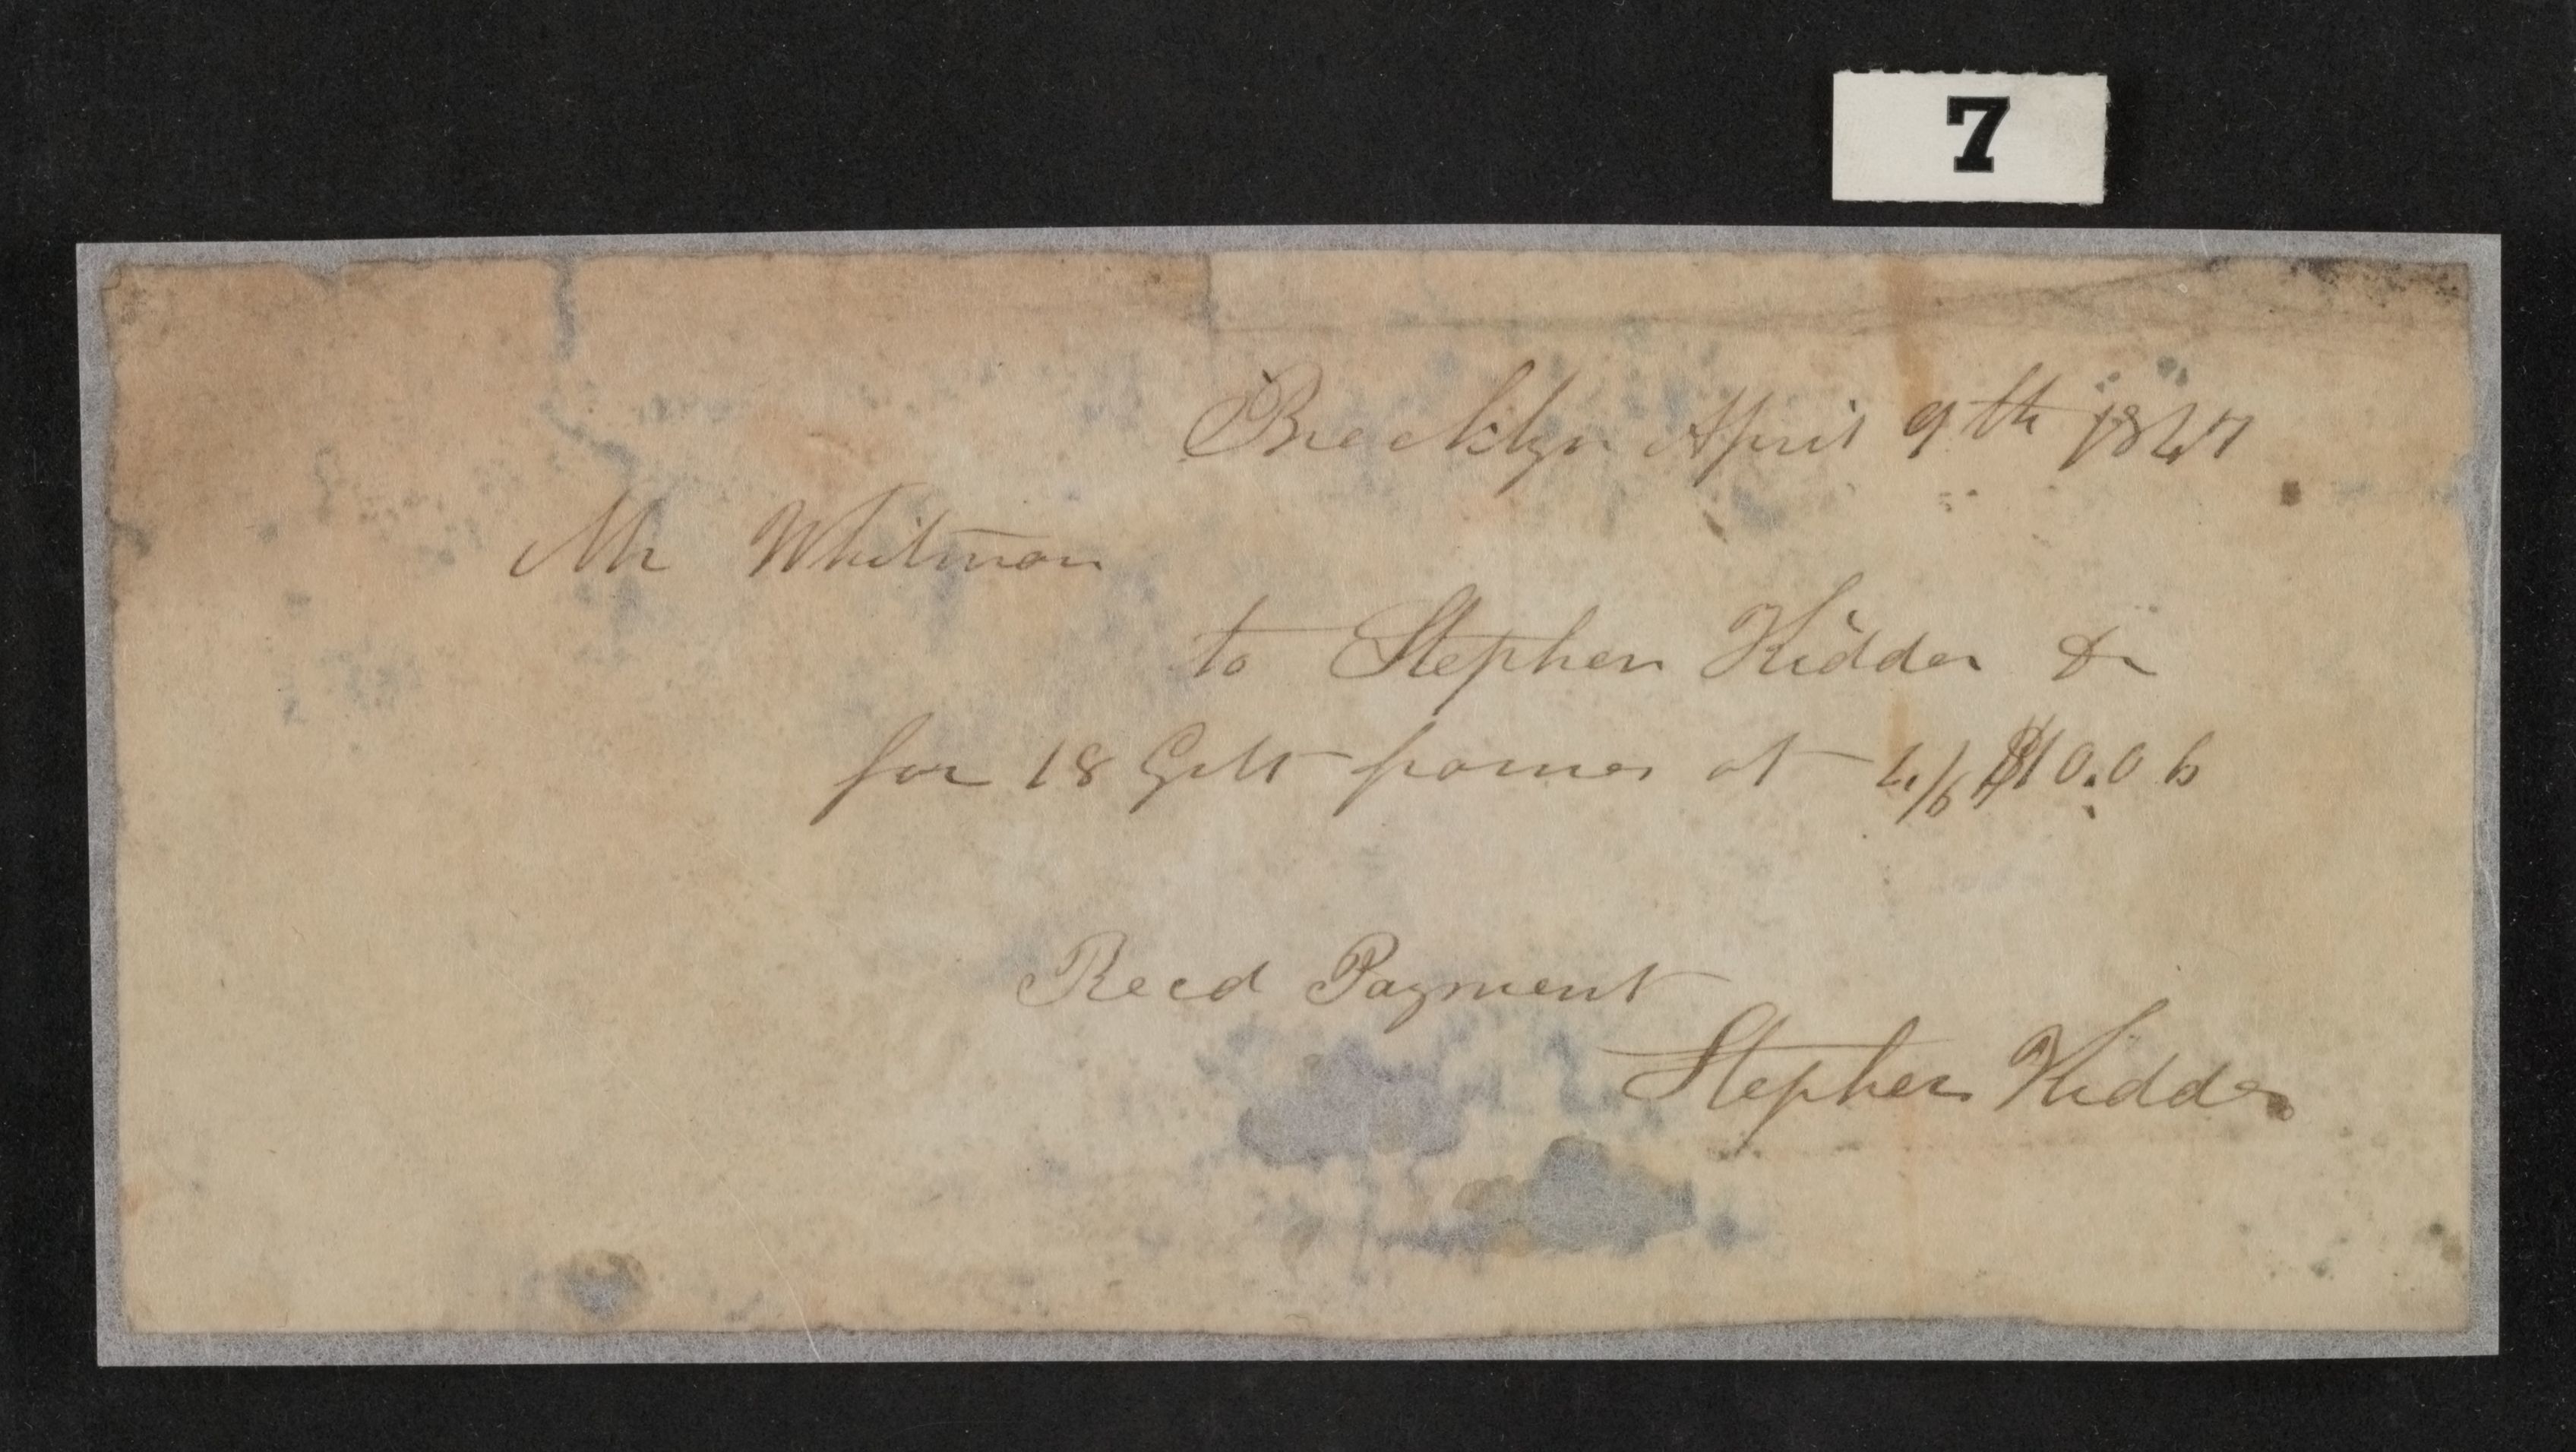 7
Brooklyn April 9th 1847
Mr Whitman
to Stephen Kidder Dr
for 18 Gilt frames at 4/6 $10.06
Recd Payment
Stephen Kidder